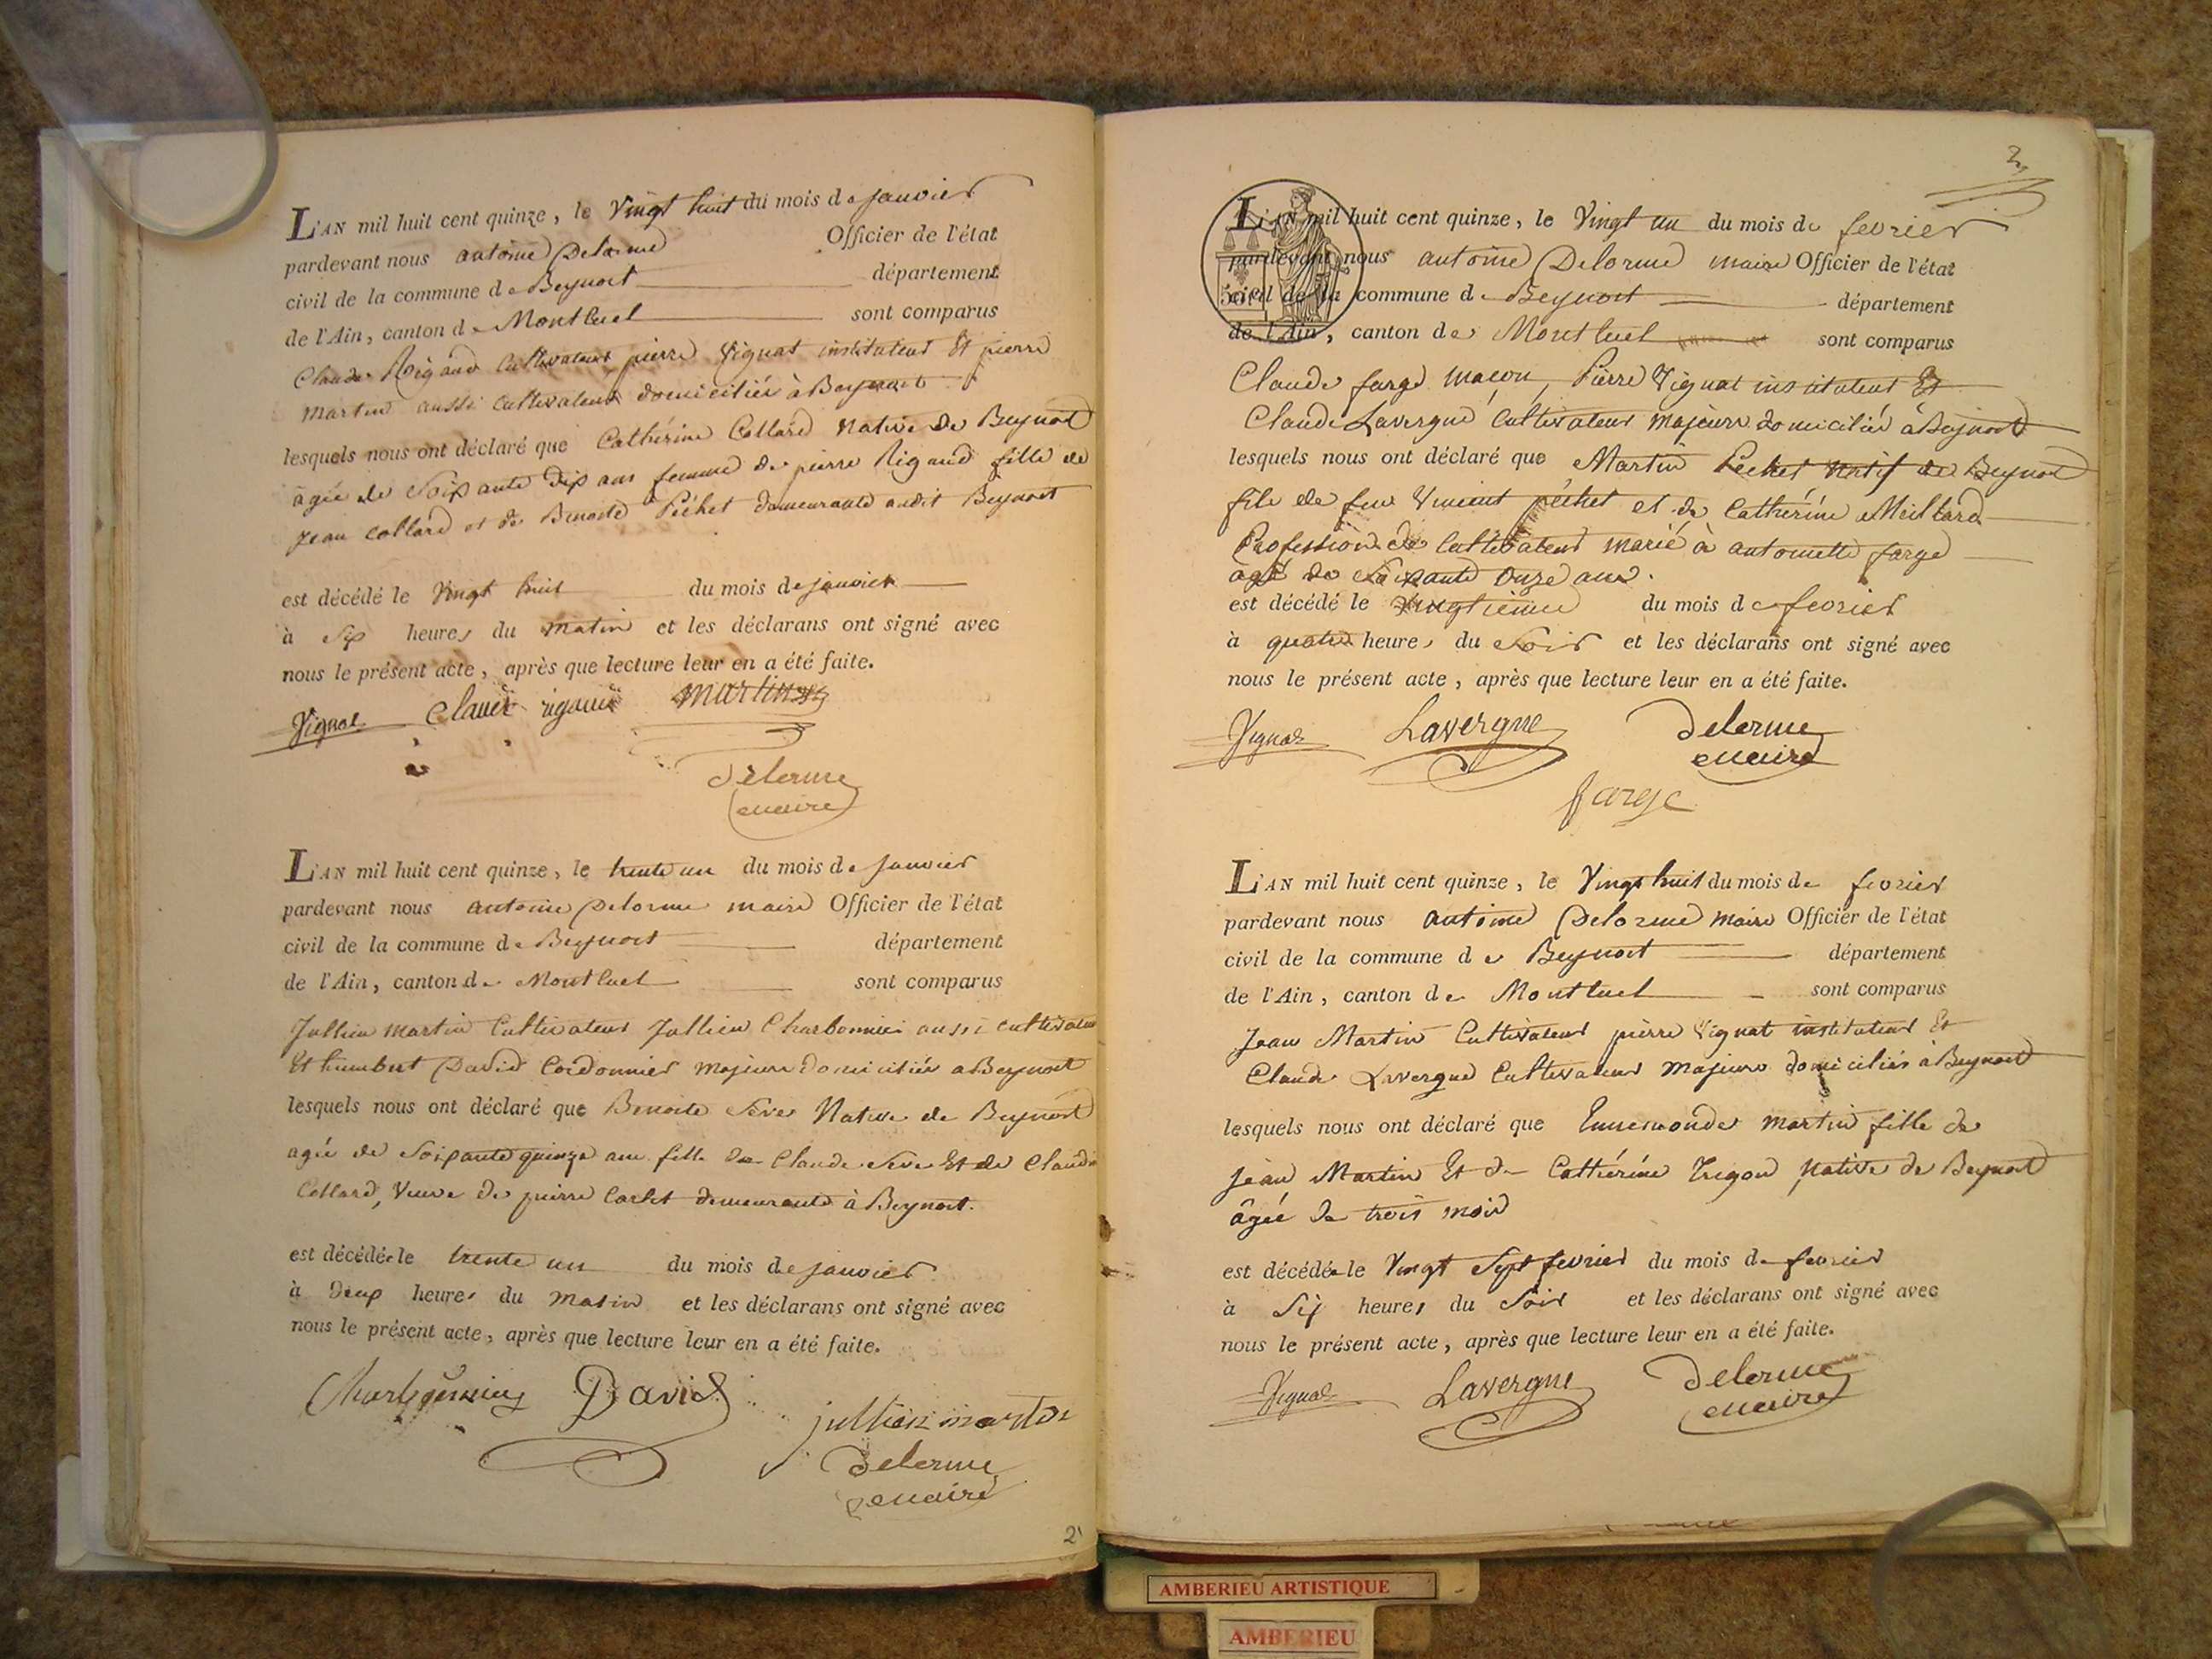 L'AN mil huit cent quinze, le Vingt huit du mois de janvier
pardevant nous antoine Delorme Officier de l'état
civil de la commune de Beynost département
de l'Ain, canton de Montluel sont comparus
Claude Rigaud Cultivateur, pierre Vignat instituteur Et pierre
Martin aussi Cultivateur domiciliés à Beynost
lesquels nous ont déclaré que Catherine Collard Native De Beynost
agée de Soixante Dix ans femme de pierre Rigaud fille de
Jean Collard et de Benoite Péchet demeurante audit Beynost
est décédé le Vingt huit du mois de janvier
à Six heures du matin et les déclarans ont signé avec
nous le présent acte, après que lecture leur en a été faite.
Vignat Claude rigaud martin
Delorme
maire
L'AN mil huit cent quinze, le trente un du mois de Janvier
pardevant nous antoine Delorme maire Officier de l'état
civil de la commune de Beynost département
de l'Ain, canton de Montluel sont comparus
Jullien Martin Cultivateur Jullien Charbonnier aussi cultivateur
Et humbert David Cordonnier Majeurs domiciliés a Beynost
lesquels nous ont déclaré que Benoite Seve Native de Beynost
agée de Soixante quinze ans fille De Claude Seve Et de Claudi
Collard, Veuve de pierre Carlet demeurante à Beynost.
est décédée le trente un du mois de janvier
à Deux heures du Matin et les déclarans ont signé avec
nous le présent acte, après que lecture leur en a été faite.
Charbonnier David
jullien martin
Delorme
maire
2
2
L'AN mil huit cent quinze, le Vingt un du mois de fevrier
pardevant nous antoine Delorme maire Officier de l'état
civil de la commune de Beynost département
de l'Ain, canton de Montluel sont comparus
Claude farge maçon, Pierre Vignat instituteur Et
Claude Lavergne Cultivateur Majeurs domiciliés à Beynost
lesquels nous ont déclaré que Martin Pechet Natif de Beynost
fils de feu Vincent péchet et de Catherine Meillard
Profession de Cultivateur marié à antoinette farge
agé de Soixante Onze ans.
est décédé le Vingtieme du mois de fevrier
à quatre heures du Soir et les déclarans ont signé avec
nous le présent acte, après que lecture leur en a été faite.
Vignat Lavergne Delorme
maire
farge
L'AN mil huit cent quinze, le Vingt huit du mois de fevrier
pardevant nous antoine Delorme maire Officier de l'état
civil de la commune de Beynost département
de l'Ain, canton de Montluel sont comparus
Jean Martin Cultivateur pierre Vignat instituteur Et
Claude Lavergne Cultivateur Majeurs domiciliés à Beynost
lesquels nous ont déclaré que Ennemonde Martin fille de
Jean Martin Et de Cathérine Trigon Native de Beynost
âgée de trois mois
est décédée le Vingt Sept fevrier du mois de fevrier
à Six heures du Soir et les déclarans ont signé avec
nous le présent acte, après que lecture leur en a été faite.
Vignat Lavergne Delorme
maire
AMBERIEU ARTISTIQUE
AMBERIEU